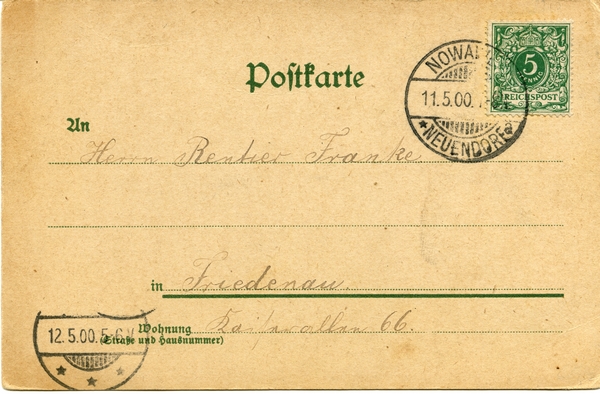 Postkarte
NOWA
5
PFENNIG
REICHSPOST
11.5.00.
*NEUENDORF*
An
Herrn Rentier Franke
in Friedenau.
Wohnung
(Straße und Hausnummer)
Kaiserallee 66.
12.5.00.5-6V